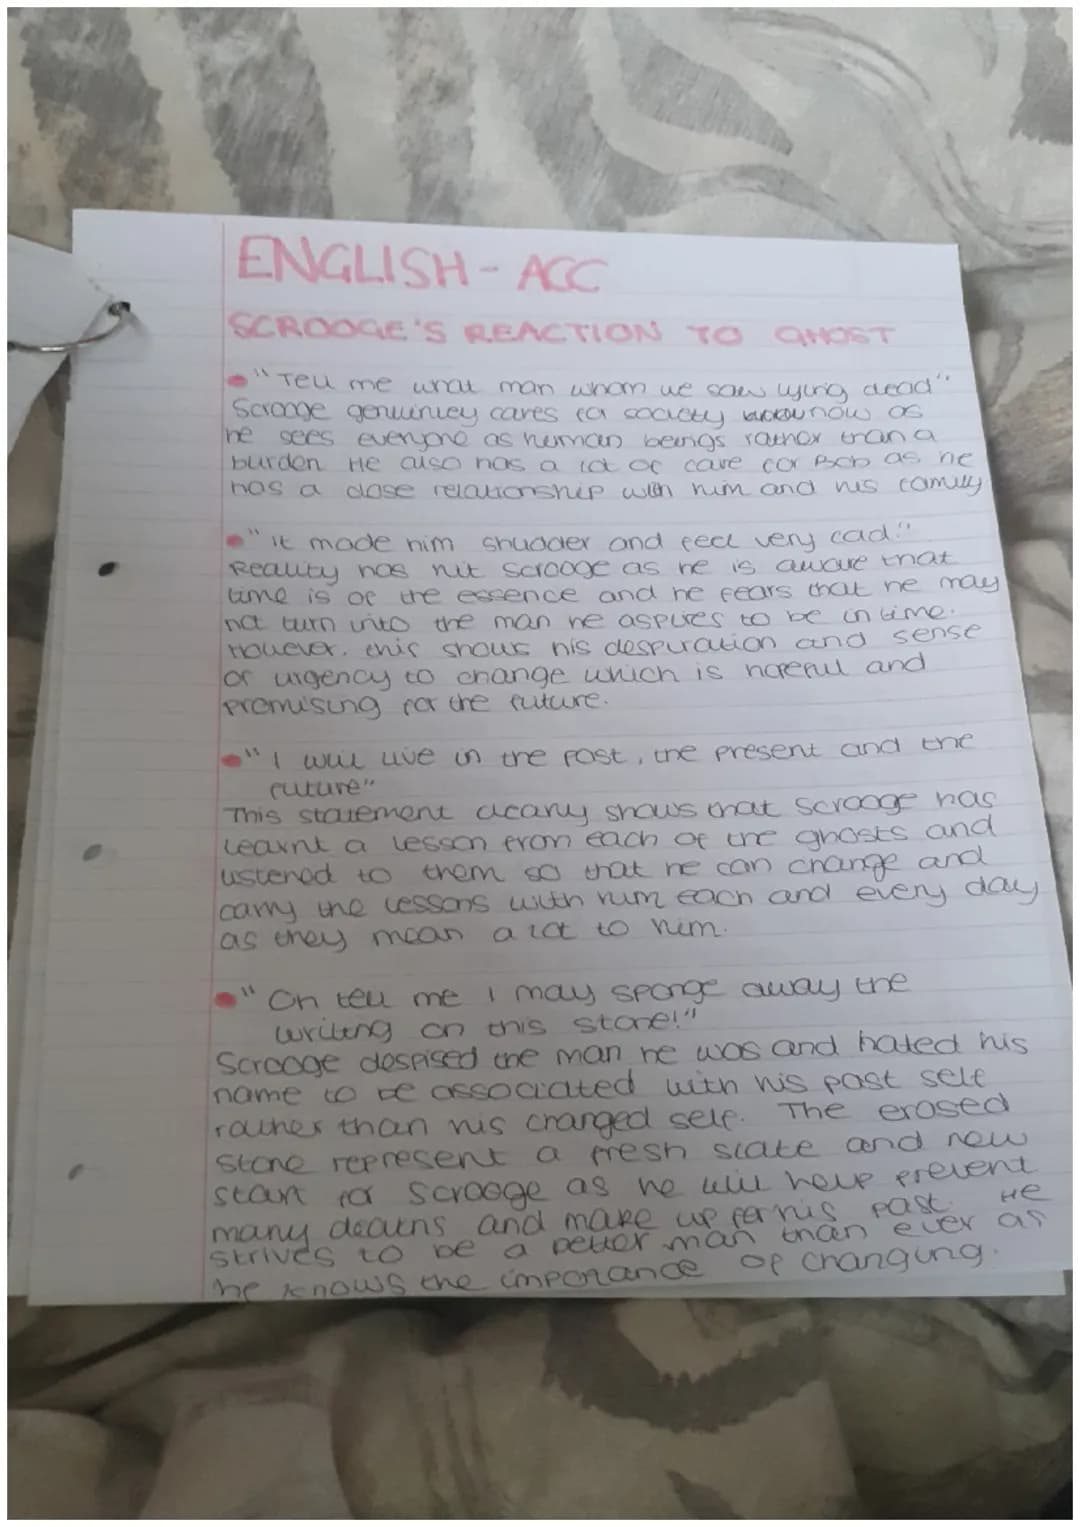 ENGLISH - ACC
SCROOGE'S REACTION TO GHOST
• "Tell me what man whom we saw lying dead".
Scrooge genuinley cares for society now as
he sees everyone as human beings rather than a
burden. He also has a lot of care for Bob as he
has a close relationship with him and his family
• "it made him shudder and feel very cold."
Reality has hit Scrooge as he is aware that
time is of the essence and he fears that he may
not turn into the man he aspires to be in time.
However, this shows his despiration and sense
of urgency to change which is hopeful and
promising for the future.
• "I will live in the past, the present and the
future"
This statement clearly shows that Scrooge has
learnt a lesson from each of the ghosts and
listened to them so that he can change and
carry the lessons with him each and every day
as they mean a lot to him.
• "Oh tell me I may sponge away the
writing on this stone!"
Scrooge despised the man he was and hated his
name to be associated with his past self
rather than his changed self. The erased
stone represent a fresh slate and new
start for Scrooge as he will help prevent
many deaths and make up for his past. He
strives to be a better man than ever as
he knows the imporance of changing.